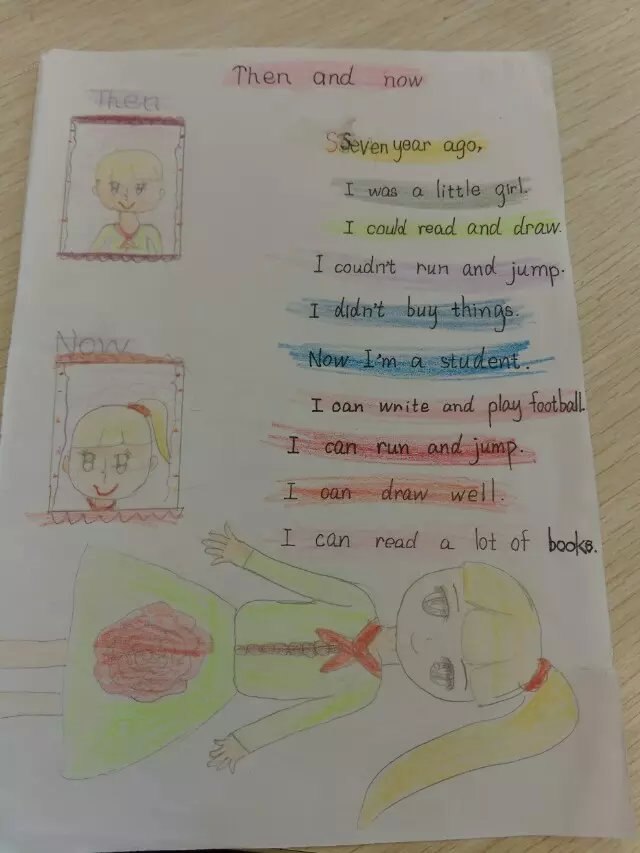 Then and now
Then
Seven year ago,
I was a little girl.
I could read and draw.
I coudn't run and jump.
I didn't buy things.
Now
Now I'm a student.
I can write and play football.
I can run and jump.
I can draw well.
I can read a lot of books.